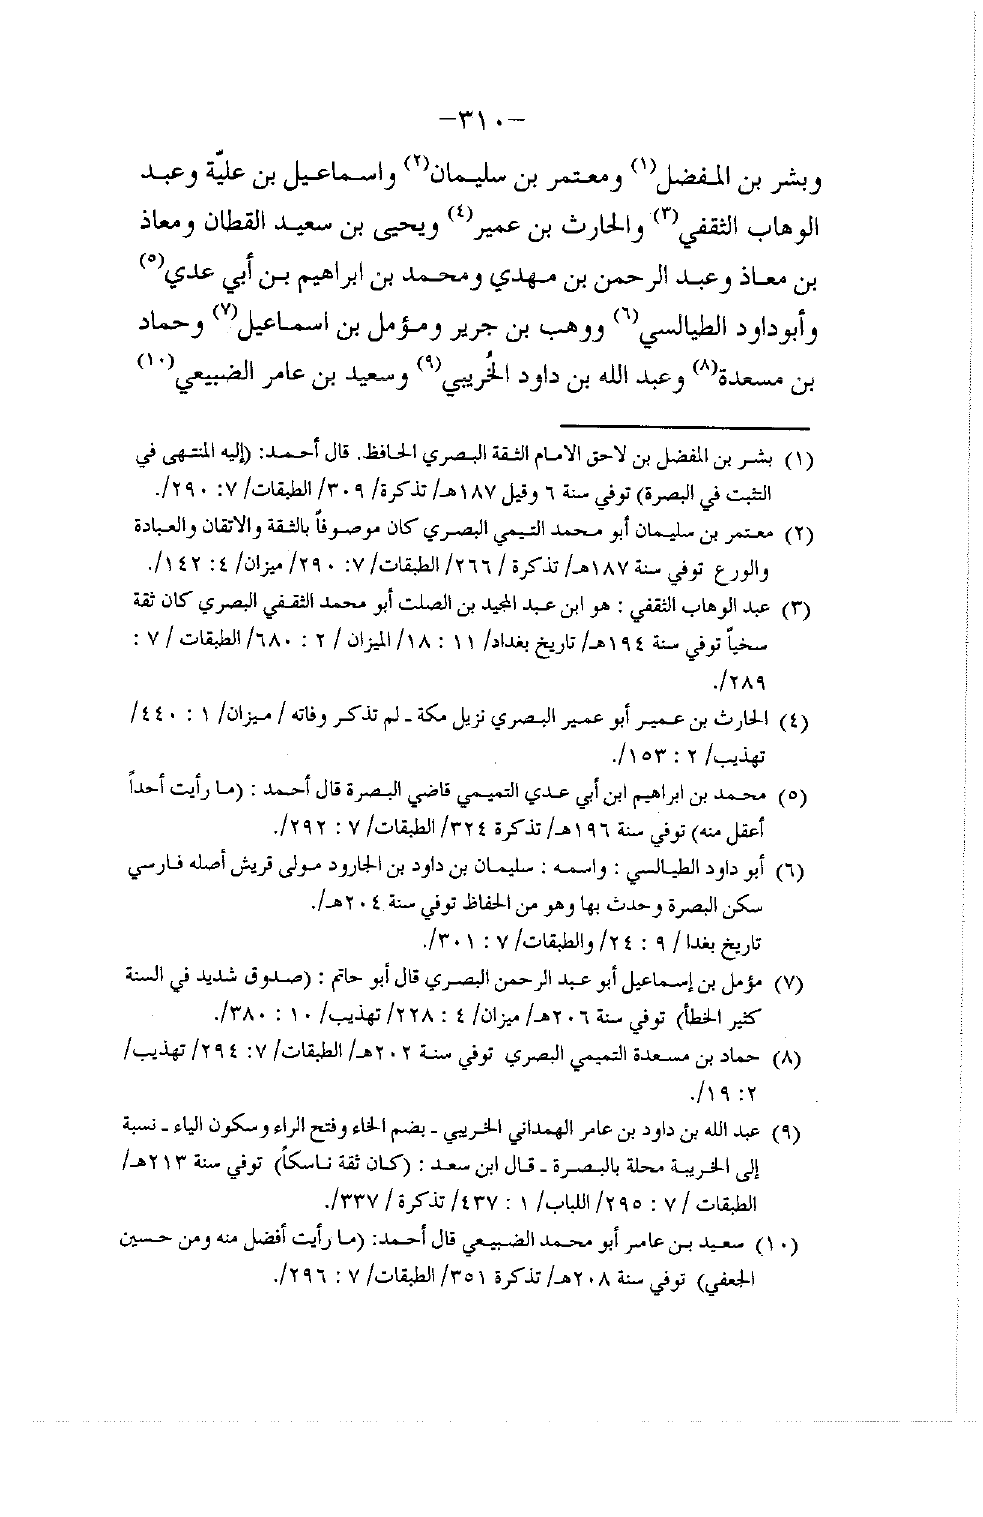 -٣١٠-
وبشر بن المفضل(١) ومعتمر بن سليمان(٢) واسماعيل بن عليّة وعبد
الوهاب الثقفي(٣) والحارث بن عمير(٤) ويحيى بن سعيد القطان ومعاذ
بن معاذ وعبد الرحمن بن مهدي ومحمد بن ابراهيم بن أبي عدي(٥)
وأبوداود الطيالسي(٦) ووهب بن جرير ومؤمل بن اسماعيل(٧) وحماد
بن مسعدة(٨) وعبد الله بن داود الخُريبي(٩) وسعيد بن عامر الضبيعي(١٠)
(١) بشر بن المفضل بن لاحق الامام الثقة البصري الحافظ. قال أحمد: (إليه المنتهى في
التثبت في البصرة) توفي سنة ٦ وقيل ١٨٧هـ/ تذكرة/ ٣٠٩/ الطبقات/ ٧: ٢٩٠/.
(٢) معتمر بن سليمان أبو محمد التيمي البصري كان موصوفاً بالثقة والاتقان والعبادة
والورع توفي سنة ١٨٧هـ/ تذكرة / ٢٦٦/ الطبقات/ ٧: ٢٩٠/ ميزان/ ٤: ١٤٢/.
(٣) عبد الوهاب الثقفي : هو ابن عبد المجيد بن الصلت أبو محمد الثقفي البصري كان ثقة
سخياً توفي سنة ١٩٤هـ/ تاريخ بغداد/ ١١ : ١٨/ الميزان / ٢ : ٦٨٠/ الطبقات / ٧ :
٢٨٩/.
(٤) الحارث بن عمير أبو عمير البصري نزيل مكة ـ لم تذكر وفاته / ميزان/ ١ : ٤٤٠/
تهذيب/ ٢ : ١٥٣/.
(٥) محمد بن ابراهيم ابن أبي عدي التميمي قاضي البصرة قال أحمد : (ما رأيت أحداً
أعقل منه) توفي سنة ١٩٦هـ/ تذكرة ٣٢٤/ الطبقات/ ٧ : ٢٩٢/.
(٦) أبو داود الطيالسي : واسمه : سليمان بن داود بن الجارود مولى قريش أصله فارسي
سكن البصرة وحدث بها وهو من الحفاظ توفي سنة ٢٠٤هـ/.
تاريخ بغدا / ٩ : ٢٤/ والطبقات/ ٧ : ٣٠١/.
(٧) مؤمل بن إسماعيل أبو عبد الرحمن البصري قال أبو حاتم : (صدوق شديد في السنة
كثير الخطأ) توفي سنة ٢٠٦هـ/ ميزان/ ٤ : ٢٢٨/ تهذيب/ ١٠ : ٣٨٠/.
(٨) حماد بن مسعدة التميمي البصري توفي سنة ٢٠٢هـ/ الطبقات/ ٧: ٢٩٤/ تهذيب/
٢: ١٩/.
(٩) عبد الله بن داود بن عامر الهمداني الخريبي ـ بضم الخاء وفتح الراء وسكون الياء ـ نسبة
إلى الخريبة محلة بالبصرة ـ قال ابن سعد : (كان ثقة ناسكاً) توفي سنة ٢١٣هـ/
الطبقات / ٧ : ٢٩٥/ اللباب/ ١ : ٤٣٧/ تذكرة / ٣٣٧/.
(١٠) سعيد بن عامر أبو محمد الضبيعي قال أحمد: (ما رأيت أفضل منه ومن حسين
الجعفي) توفي سنة ٢٠٨هـ/ تذكرة ٣٥١/ الطبقات/ ٧ : ٢٩٦/.